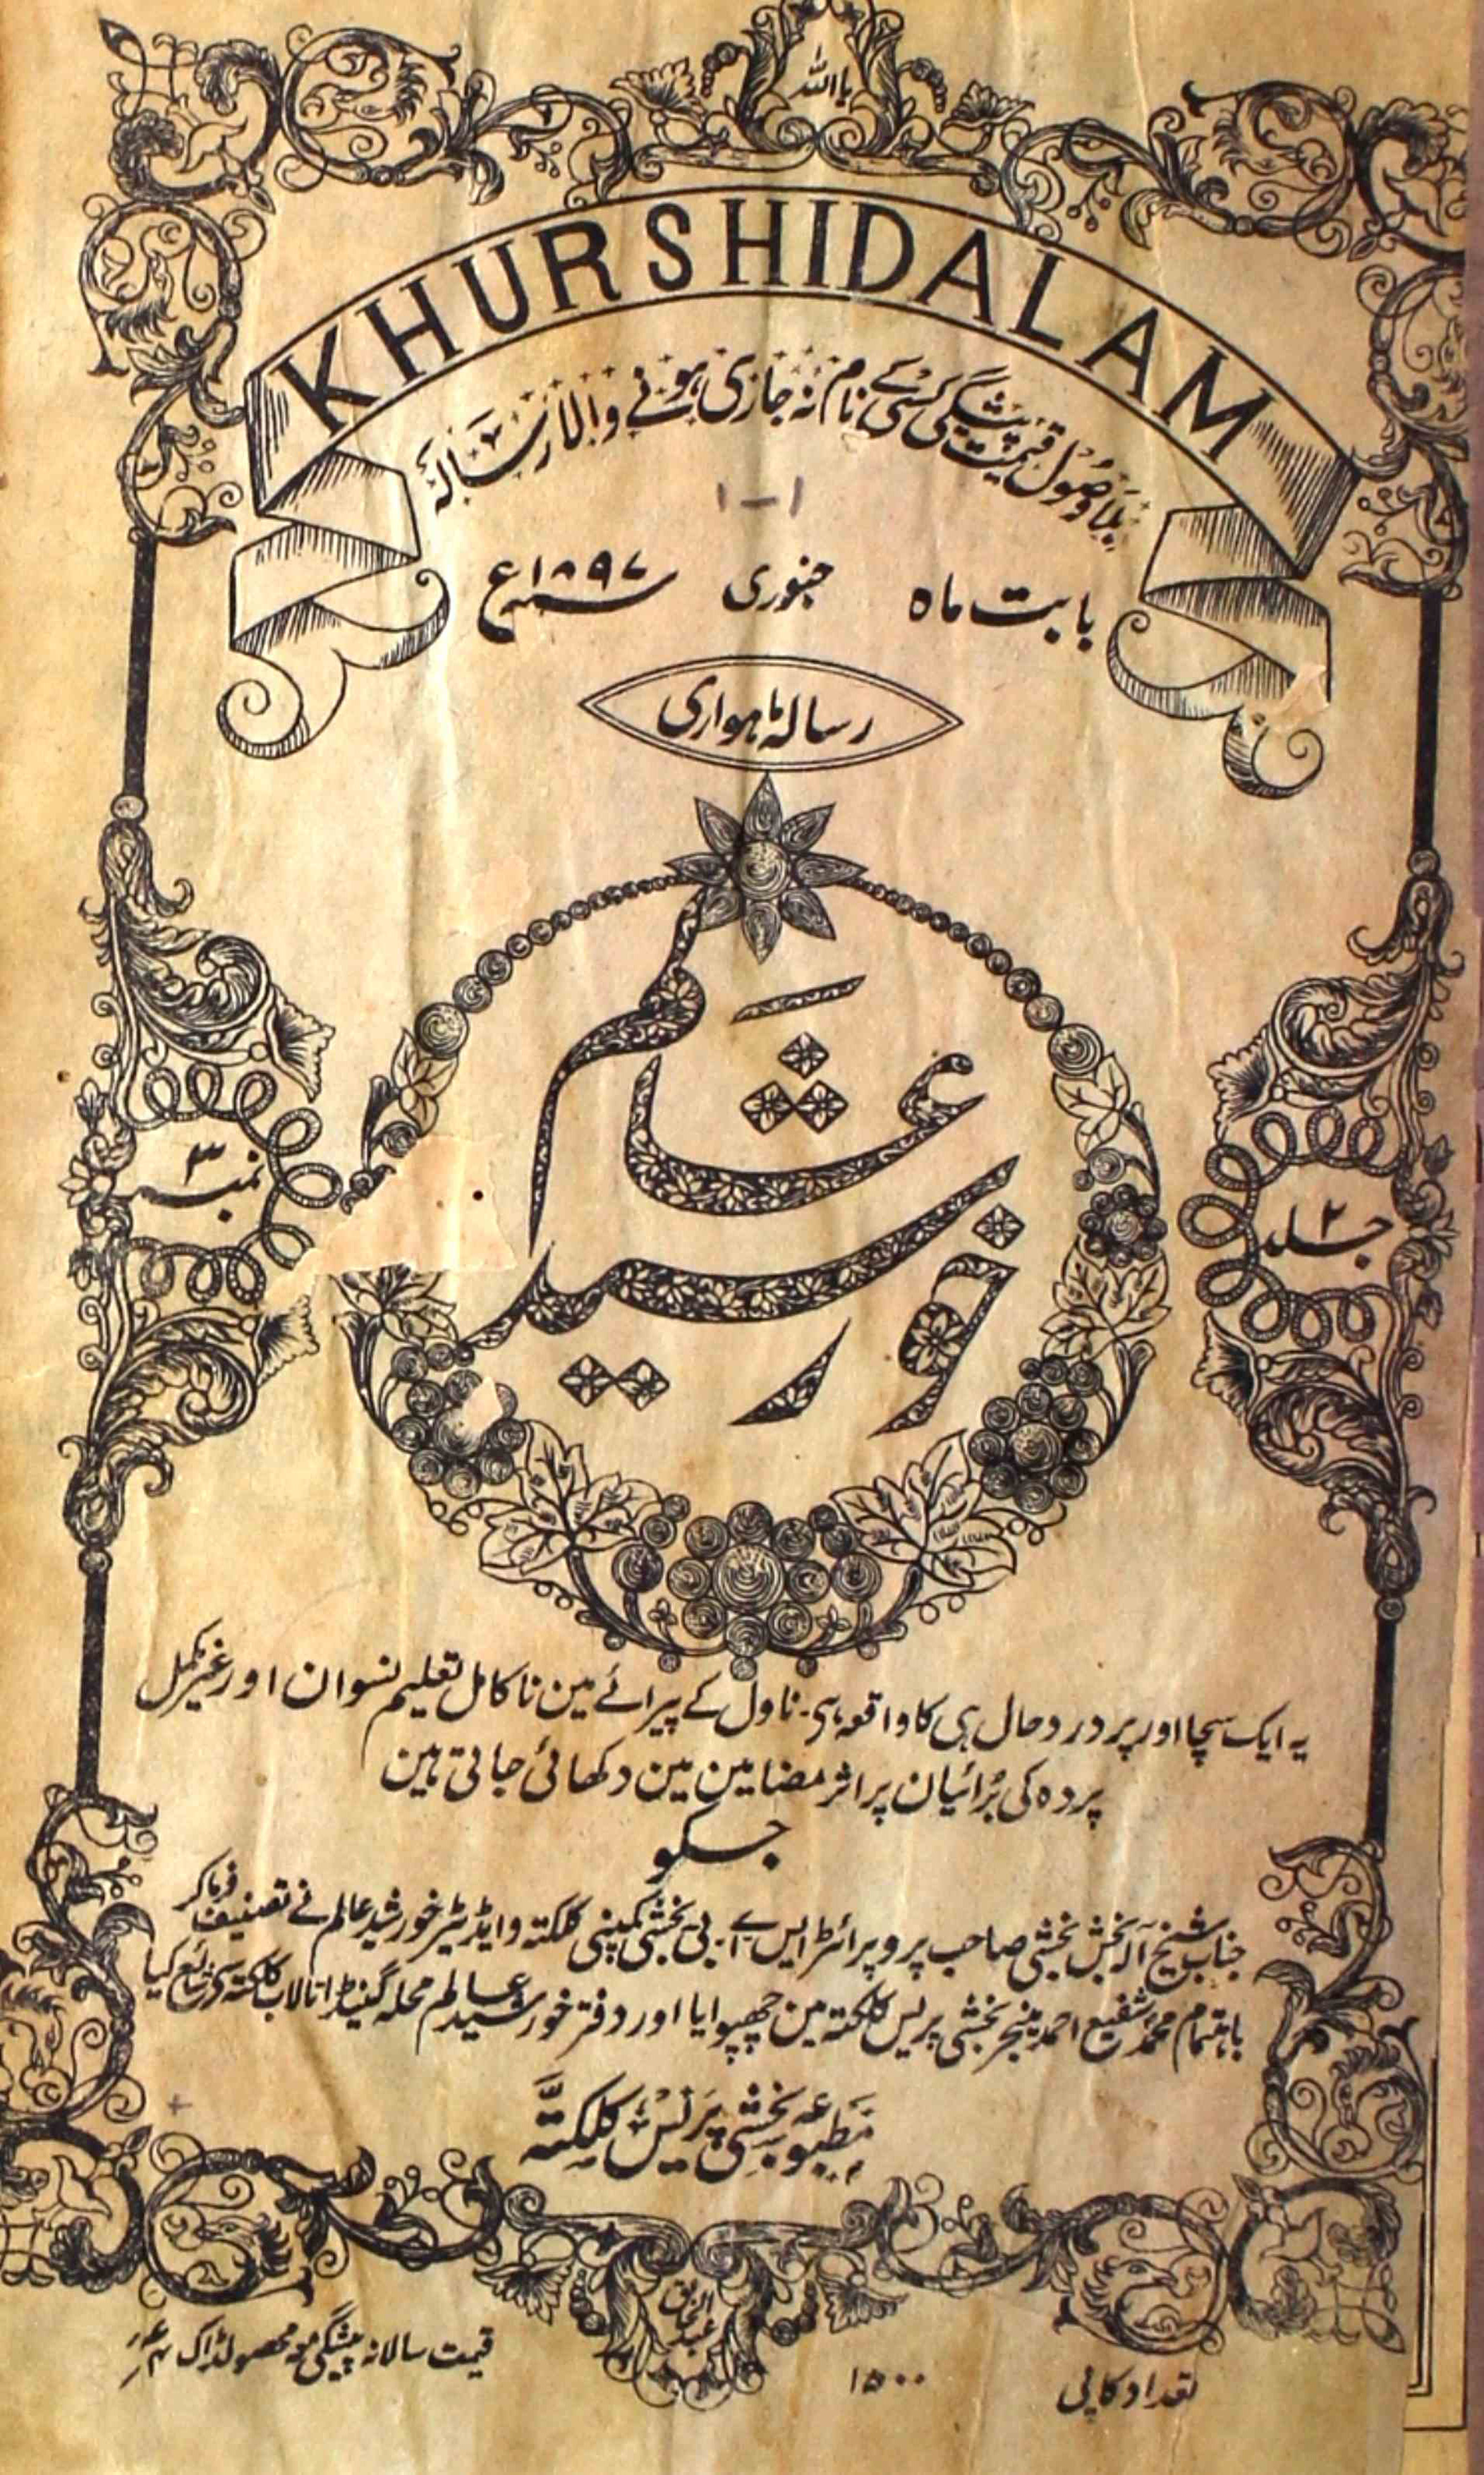 یا اللہ
KHURSHIDALAM
بلا وصول قیمت پیشگی کسی کے نام نہ جاری ہونے والا رسالہ
۱-۱
بابت ماہ جنوری سنہ ۱۸۹۷ع
رسالہ ماہواری
خورشید عالم
جلد ۲
نمبر ۳
یہ ایک سچا اور پر درد حال ہی کا واقعہ ہی۔ ناول کے پیرائے مین ناکامل تعلیم نسوان اور غیر مکمل
پردہ کی برائیان پر اثر مضامین مین دکھائی جاتی ہین
جسکو
جناب شیخ آلہ بخش بخشی صاحب پروپرائٹر ایس۔ اے۔ بی بخشی کمپنی کلکتہ و ایڈیٹر خورشید عالم نے تصنیف فرما کر
باہتمام محمد شفیع احمد منیجر بخشی پریس کلکتہ مین چھپوایا اور دفتر خورشید عالم محلہ گنیڈا تالاب کلکتہ سے شائع کیا
مطبوعہ بخشی پریس کلکتہ
عبد الخالق
تعداد کاپی ۱۵۰۰
قیمت سالانہ پیشگی معہ محصولڈاک